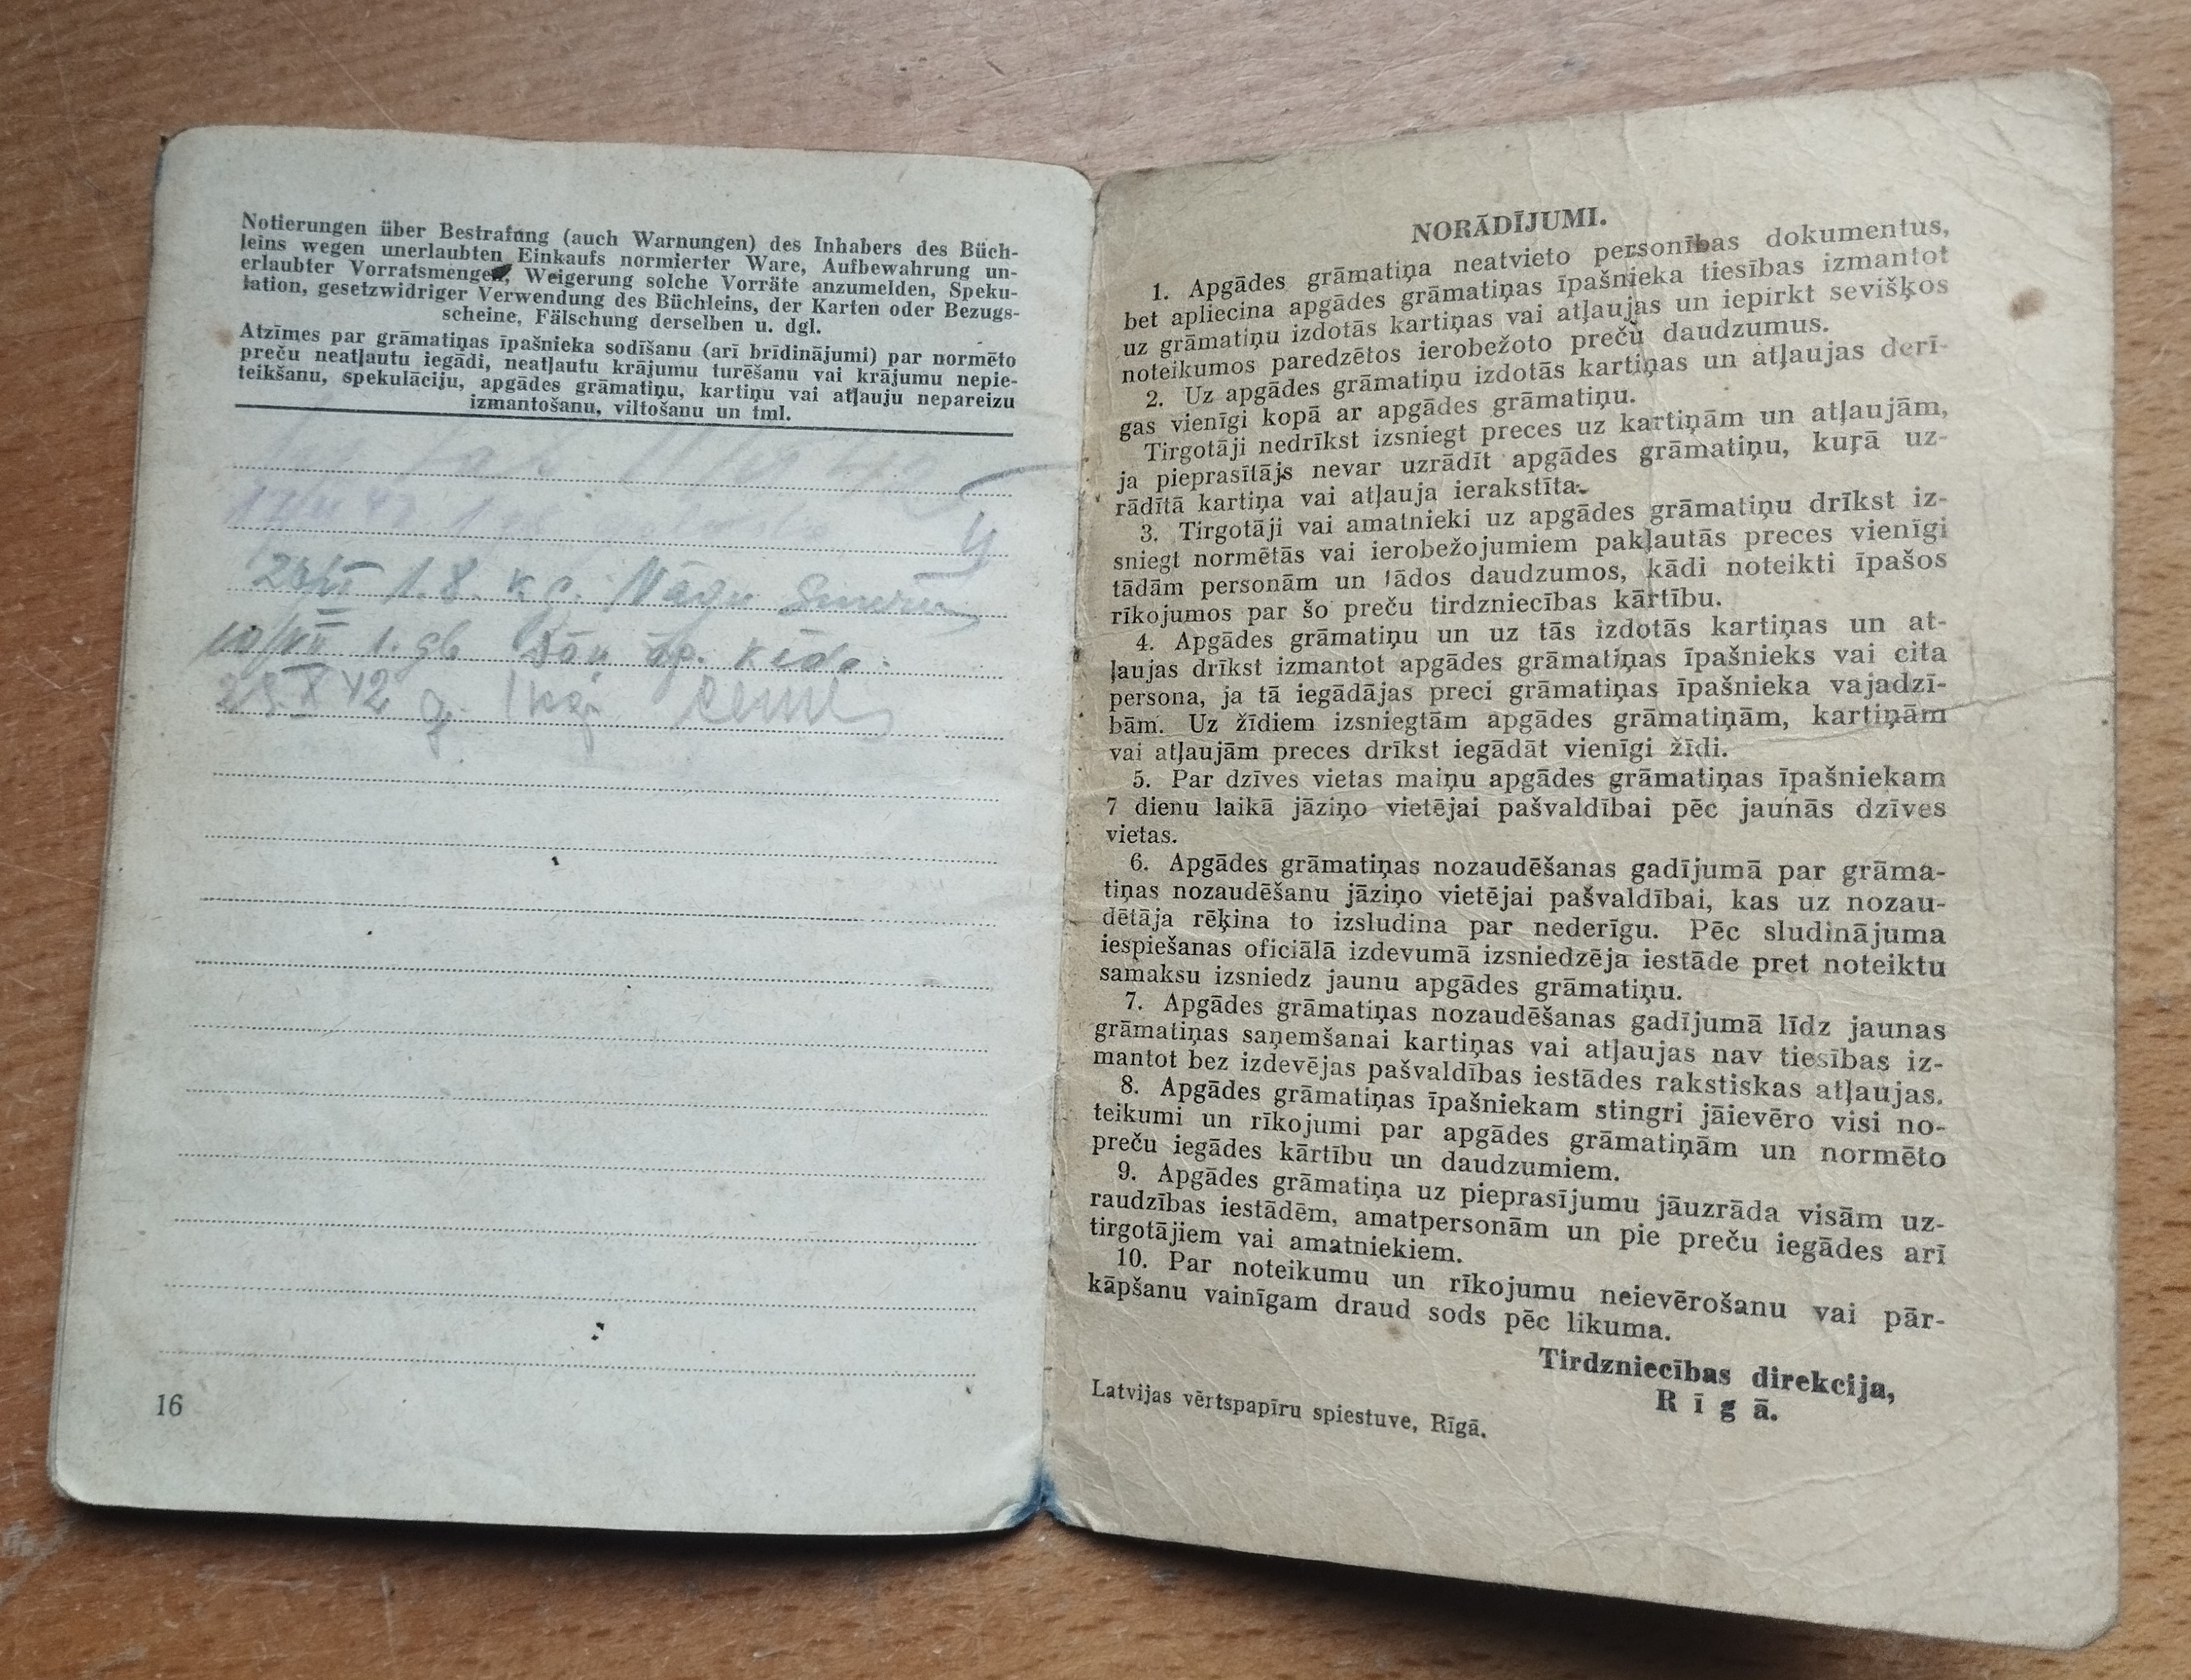 Notierungen über Bestrafung (auch Warnungen) des Inhabers des Büch-
leins wegen unerlaubten Einkaufs normierter Ware, Aufbewahrung un-
erlaubter Vorratsmengen, Weigerung solche Vorräte anzumelden, Speku-
lation, gesetzwidriger Verwendung des Büchleins, der Karten oder Bezugs-
scheine, Fälschung derselben u. dgl.
Atzīmes par grāmatiņas īpašnieka sodīšanu (arī brīdinājumi) par normēto
preču neatļautu iegādi, neatļautu krājumu turēšanu vai krājumu nepie-
teikšanu, spekulāciju, apgādes grāmatiņu, kartiņu vai atļauju nepareizu
izmantošanu, viltošanu un tml.
1.8. kg.
10/XII 1. gb
23.X 42 g. 1 kg.
16
NORĀDĪJUMI.
1. Apgādes grāmatiņa neatvieto personības dokumentus,
bet apliecina apgādes grāmatiņas īpašnieka tiesības izmantot
uz grāmatiņu izdotās kartiņas vai atļaujas un iepirkt sevišķos
noteikumos paredzētos ierobežoto preču daudzumus.
2. Uz apgādes grāmatiņu izdotās kartiņas un atļaujas derī-
gas vienīgi kopā ar apgādes grāmatiņu.
Tirgotāji nedrīkst izsniegt preces uz kartiņām un atļaujām,
ja pieprasītājs nevar uzrādīt apgādes grāmatiņu, kuŗā uz-
rādītā kartiņa vai atļauja ierakstīta.
3. Tirgotāji vai amatnieki uz apgādes grāmatiņu drīkst iz-
sniegt normētās vai ierobežojumiem pakļautās preces vienīgi
tādām personām un tādos daudzumos, kādi noteikti īpašos
rīkojumos par šo preču tirdzniecības kārtību.
4. Apgādes grāmatiņu un uz tās izdotās kartiņas un at-
ļaujas drīkst izmantot apgādes grāmatiņas īpašnieks vai cita
persona, ja tā iegādājas preci grāmatiņas īpašnieka vajadzī-
bām. Uz žīdiem izsniegtām apgādes grāmatiņām, kartiņām
vai atļaujām preces drīkst iegādāt vienīgi žīdi.
5. Par dzīves vietas maiņu apgādes grāmatiņas īpašniekam
7 dienu laikā jāziņo vietējai pašvaldībai pēc jaunās dzīves
vietas.
6. Apgādes grāmatiņas nozaudēšanas gadījumā par grāma-
tiņas nozaudēšanu jāziņo vietējai pašvaldībai, kas uz nozau-
dētāja rēķina to izsludina par nederīgu. Pēc sludinājuma
iespiešanas oficiālā izdevumā izsniedzēja iestāde pret noteiktu
samaksu izsniedz jaunu apgādes grāmatiņu.
7. Apgādes grāmatiņas nozaudēšanas gadījumā līdz jaunas
grāmatiņas saņemšanai kartiņas vai atļaujas nav tiesības iz-
mantot bez izdevējas pašvaldības iestādes rakstiskas atļaujas.
8. Apgādes grāmatiņas īpašniekam stingri jāievēro visi no-
teikumi un rīkojumi par apgādes grāmatiņām un normēto
preču iegādes kārtību un daudzumiem.
9. Apgādes grāmatiņa uz pieprasījumu jāuzrāda visām uz-
raudzības iestādēm, amatpersonām un pie preču iegādes arī
tirgotājiem vai amatniekiem.
10. Par noteikumu un rīkojumu neievērošanu vai pār-
kāpšanu vainīgam draud sods pēc likuma.
Tirdzniecības direkcija,
Rīgā.
Latvijas vērtspapīru spiestuve, Rīgā.